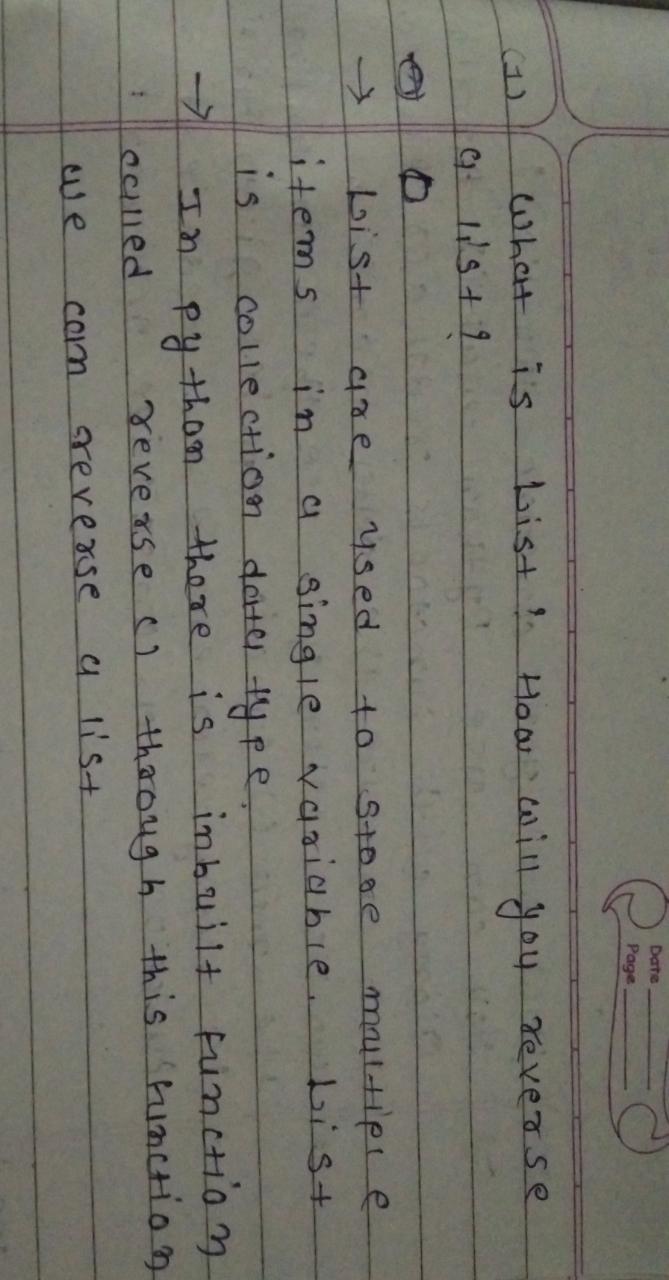 Date
Page
(1) What is List? How will you reverse
a list?
→ List are used to store multiple
items in a single variable. List
is collection data type.
→ In python there is inbuilt function
called reverse () through this function
we can reverse a list